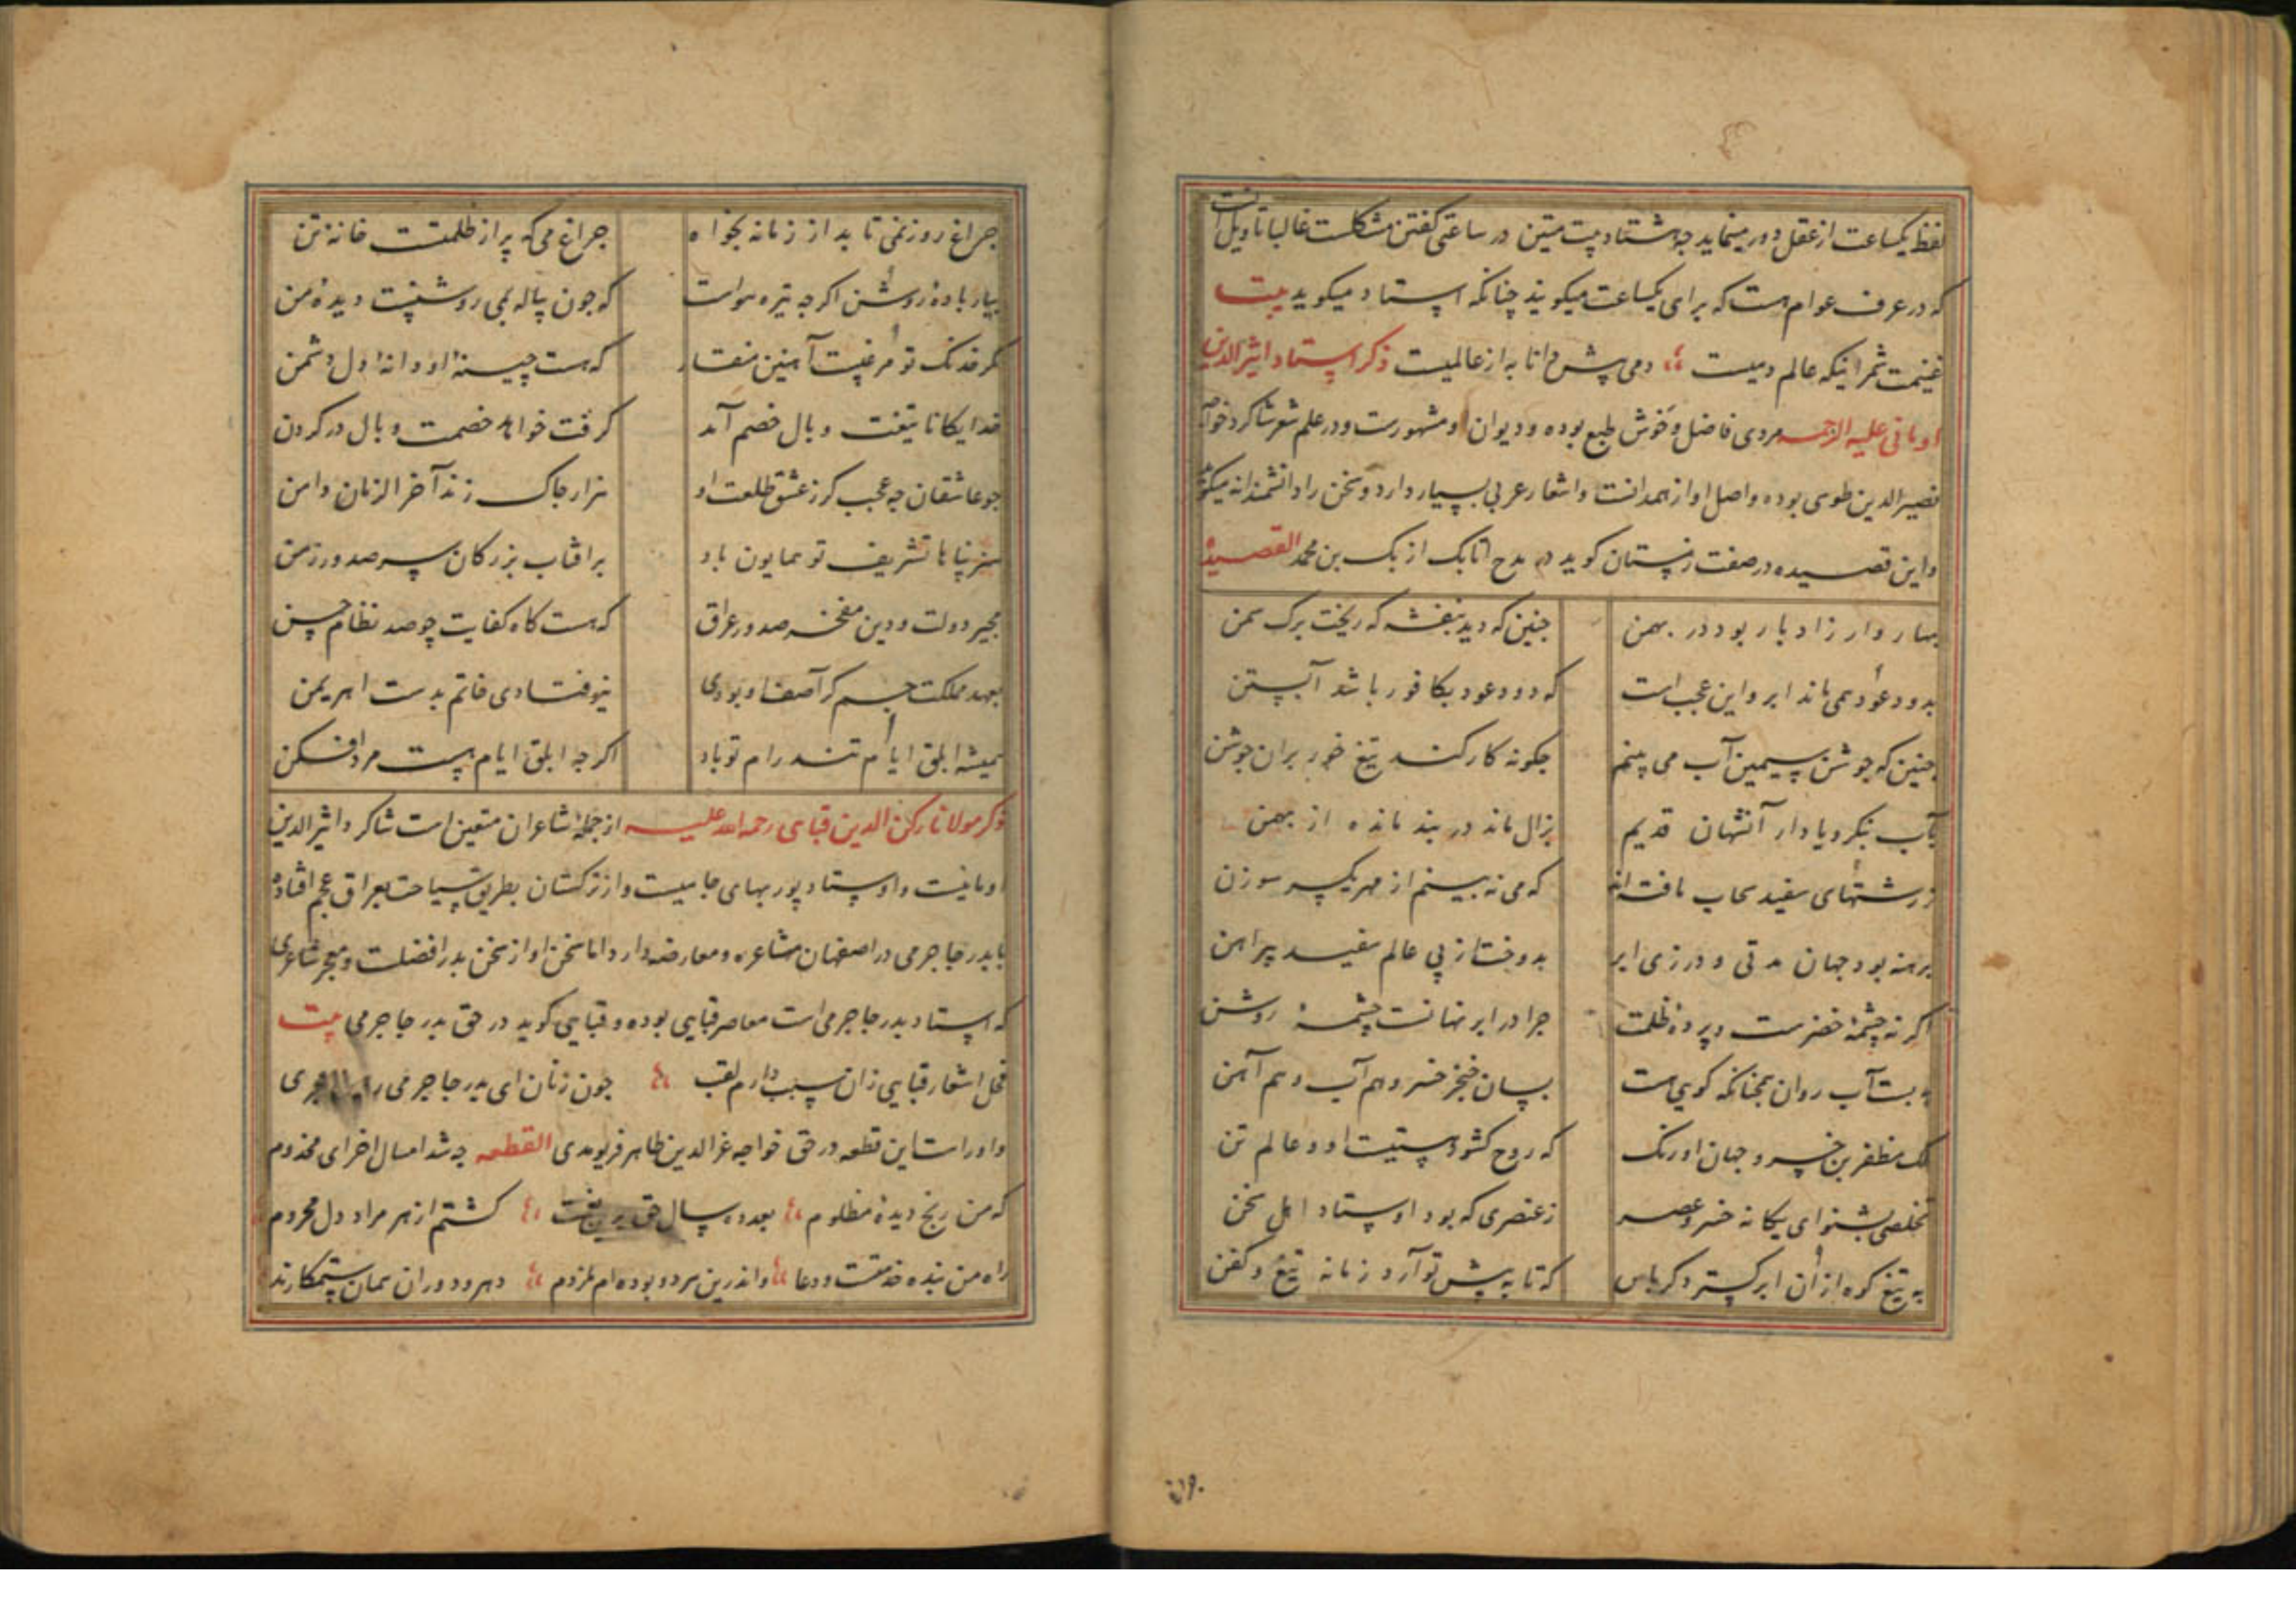 لفظ یکساعت از عقل دور مینماید چه هشتاد بیت متین در ساعتی کفتن مشکلست غالبا تاویل آنست
که در عرف عوام هست که برای یکساعت میکویند چنانکه استاد میکوید بیت
غنیمت شمر اینکه عالم دمیست دمی پیش دانا به از عالمیست ذکر استاد اثیر الدین
اومانی علیه الرحمه مردی فاضل و خوش طبع بوده و دیوان او مشهورست و در علم شعر شاکرد خواجه
نصیر الدین طوسی بوده و اصل او از همدانست و اشعار عربی بسیار دارد و سخن را دانشمندانه میکوید
و این قصیده در صفت زمستان کوید در مدح اتابک ازبک بن محمد القصیده
بهار وار زاد بار بود در بهمن چنین که دید بنفشه که ریخت برک سمن
بدود عود همی ماند ابر و این عجب است که دود عود بکافور باشد آبستن
چنین که جوشن سیمین آب می بینم چکونه کار کند تیغ خور بران جوشن
بآب بنکر و یاد ار آنشهان قدیم بزال ماند در بند مانده از بهمن
ز رشتهای سفید سحاب بافته اند که می نه بینم از مهر یکسر سوزن
برهنه بود جهان مدتی و درزی ابر بدوخت از پی عالم سفید پیراهن
اکر نه چشمهٔ خضرست و پردهٔ ظلمت چرا در ابر نهانست چشمهٔ روشن
به بست آب روان همچنانکه کویی هست بسان خنجر خسرو هم آب و هم آهن
ملک مظفر بن خسرو جهان اورنک که روح کشور هستیست او و عالم تن
تخلصی بشنو ای یکانه خسرو عصر ز عنصری که بود اوستاد اهل سخن
به تیغ کوه از آن ابر کسترد کرباس که تا به پیش تو آرد زمانه تیغ و کفن
چراغ روز نمی تابد از زمانه بخواه چراغ می که پر از ظلمتست خانهٔ تن
بیار بادهٔ روشن اکر چه تیره هواست که چون پیاله بمی روشنست دیدهٔ من
مکر خدنک تو مرغیست آهنین منقار که هست چینهٔ او دانهٔ دل دشمن
خدایکانا تیغت وبال خصم آمد کرفت خوابه خصمت وبال در کردن
چو عاشقان چه عجب کر ز عشق طلعت او هزار چاک زند آخر الزمان دامن
هنر پناها تشریف تو همایون باد بر افتاب بزرکان سر صدور زمن
مجیر دولت و دین مفخر صدور عراق که هست کاه کفایت چو صد نظام حسن
بعهد مملکت جم کر آصف او بودی نیوفتادی خاتم بدست اهریمن
همیشه ابلق ایام تند رام تو باد اکر چه ابلق ایام هست مرد افکن
ذکر مولانا رکن الدین قبایی رحمه الله علیه از جمله شاعران متعین است شاکرد اثیر الدین
اومانیست و اوستاد پور بهای جامیست و از ترکستان بطریق سیاحت بعراق عجم افتاده
با بدر جاجرمی در اصفهان مشاعره و معارضه دارد اما سخن او از سخن بدر افضلست و مجد شاعری
که استاد بدر جاجرمی است معاصر قبایی بوده و قبایی کوید در حق بدر جاجرمی بیت
فحل اشعار قبایی زان سبب دارم لقب چون زنان ای بدر جاجرمی
و اوراست این قطعه در حق خواجه عز الدین طاهر فریومدی القطعه چه شد امسال اخر ای مخدوم
که من رنج دیدهٔ مظلوم بعد ده سال حق کشتم از هر مراد دل محروم
راه من بنده خدمتست و دعا و اندرین هر دو بوده ام ملزوم دهر و دوران همان ستمکارند